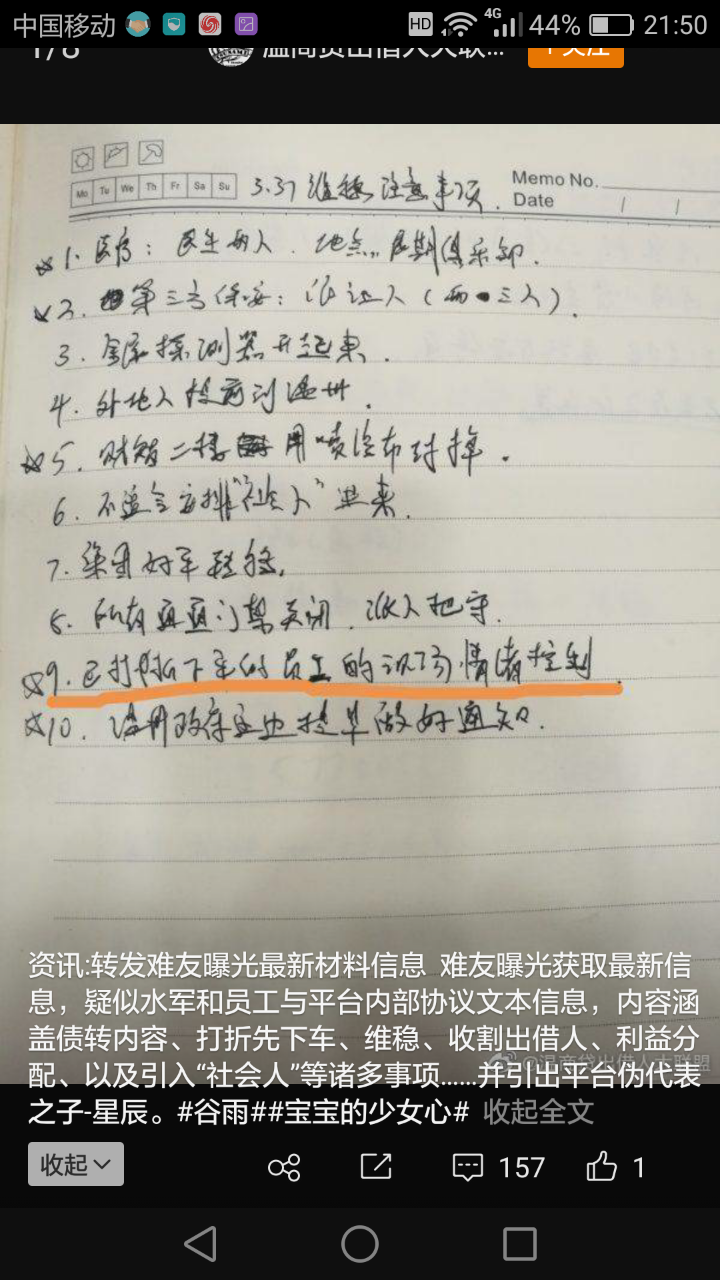 中国移动 HD 4G 44% 21:50
Memo No.
Mo Tu We Th Fr Sa Su 3.31 维稳注意事项. Date / /
1. 医疗: 民生两人. 地点:星期俱乐部.
2. 第三方保安: 派过人(两·三人).
3. 金属探测器开起来.
4. 外地人提前到温州.
5. 财智二楼 用喷涂布对掉.
6. 不造会安排“社会人”进来.
7. 集团好车转移.
8. 所有通道门禁关闭. 派人把守.
9. 已打折下车的员工的现场情绪控制.
10. 温州政府这边提早做好通知.
资讯:转发难友曝光最新材料信息 难友曝光获取最新信
息，疑似水军和员工与平台内部协议文本信息，内容涵
盖债转内容、打折先下车、维稳、收割出借人、利益分
配、以及引入“社会人”等诸多事项......并引出平台伪代表
之子-星辰。#谷雨##宝宝的少女心# 收起全文
@温商贷出借人大联盟
收起 157 1